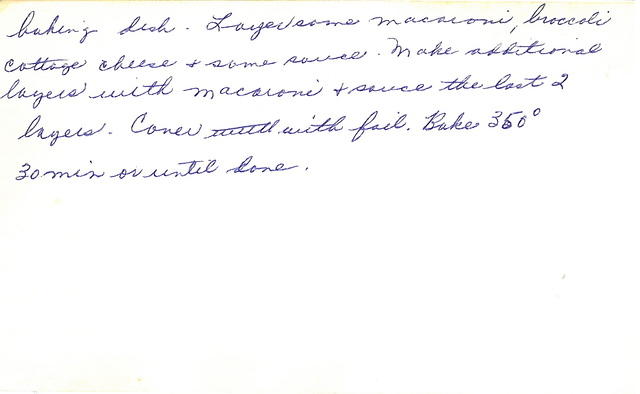 baking dish. Layer some macaroni, broccoli
cottage cheese + some sauce. Make additional
layers with macaroni + sauce the last 2
layers. Cover with foil. Bake 350°
30 min or until done.